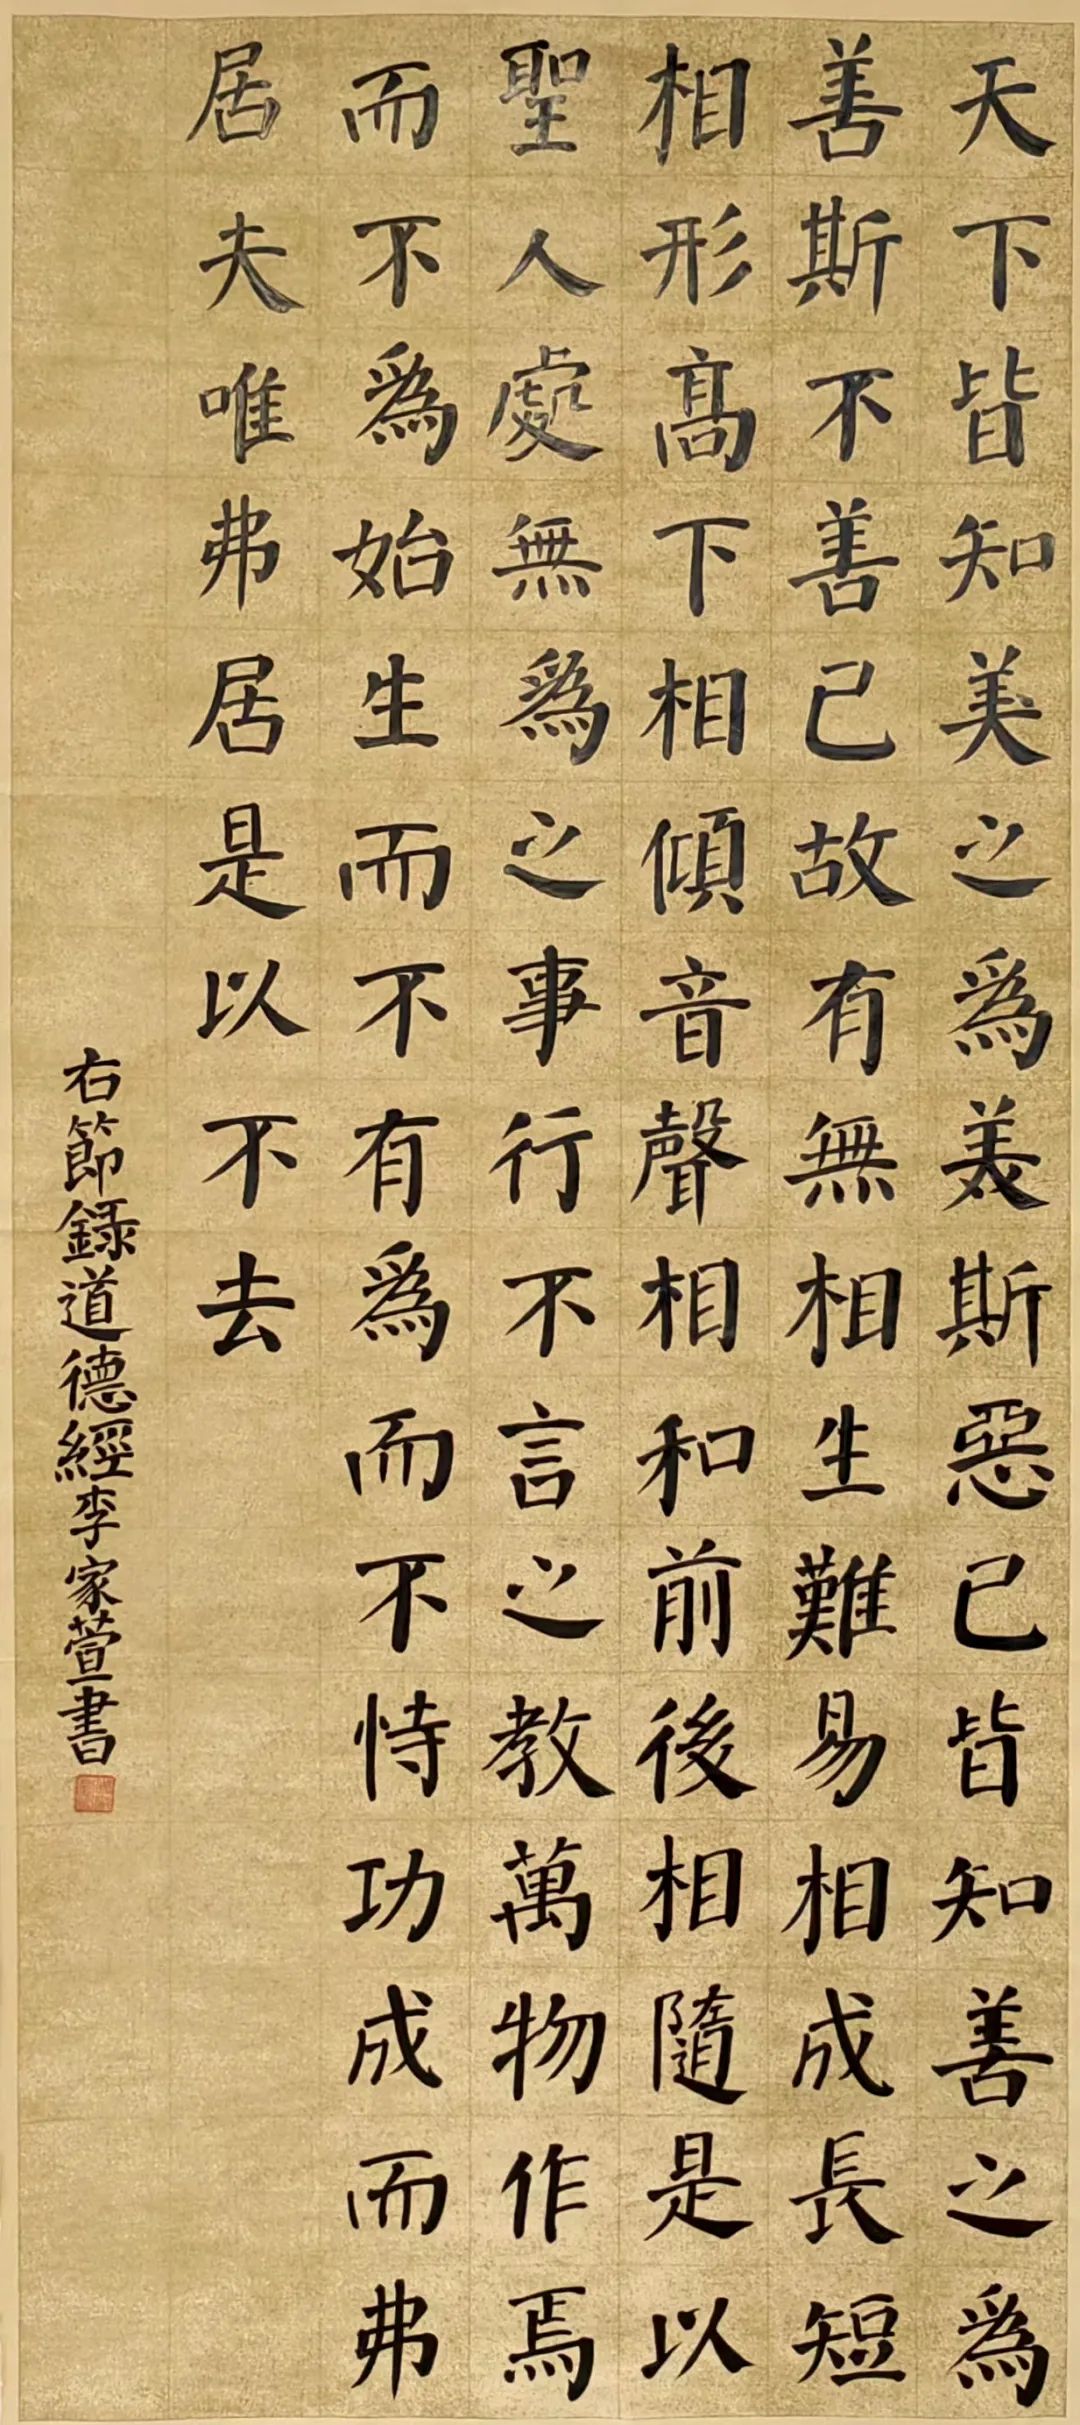 天下皆知美之爲美斯惡已皆知善之爲
善斯不善已故有無相生難易相成長短
相形髙下相傾音聲相和前後相隨是以
聖人處無爲之事行不言之教萬物作焉
而不爲始生而不有爲而不恃功成而弗
居夫唯弗居是以不去
右節録道德經李家萱書